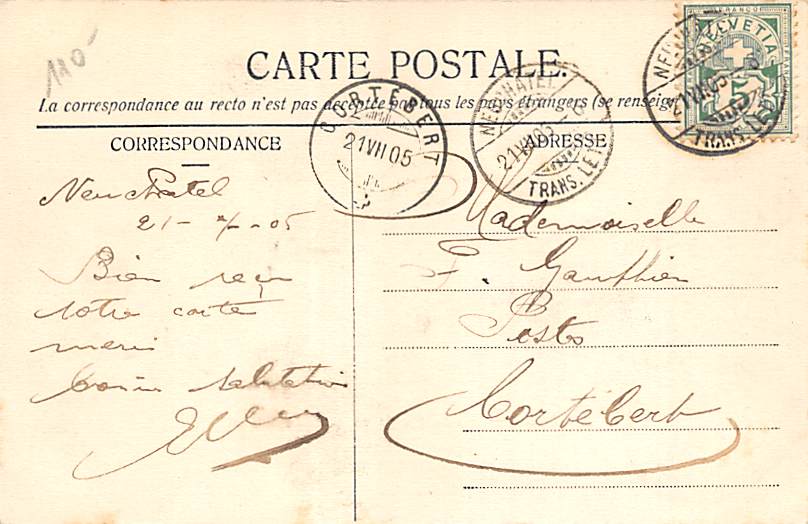 110-
CARTE POSTALE.
La correspondance au recto n'est pas acceptée par tous les pays étrangers (se renseign
CORRESPONDANCE
ADRESSE
CORTÉBERT
21 VII 05
NEUCHATEL
21 VII 05
TRANS. LETT
NEUCHATEL
21 VII 05
TRANS. LETT
FRANCO
HELVETIA
5
Neuchatel
21 - - 05
Bien reçu
votre carte
merci
bonnes salutations
Mademoiselle
F. Gauthier
Postes
Cortébert